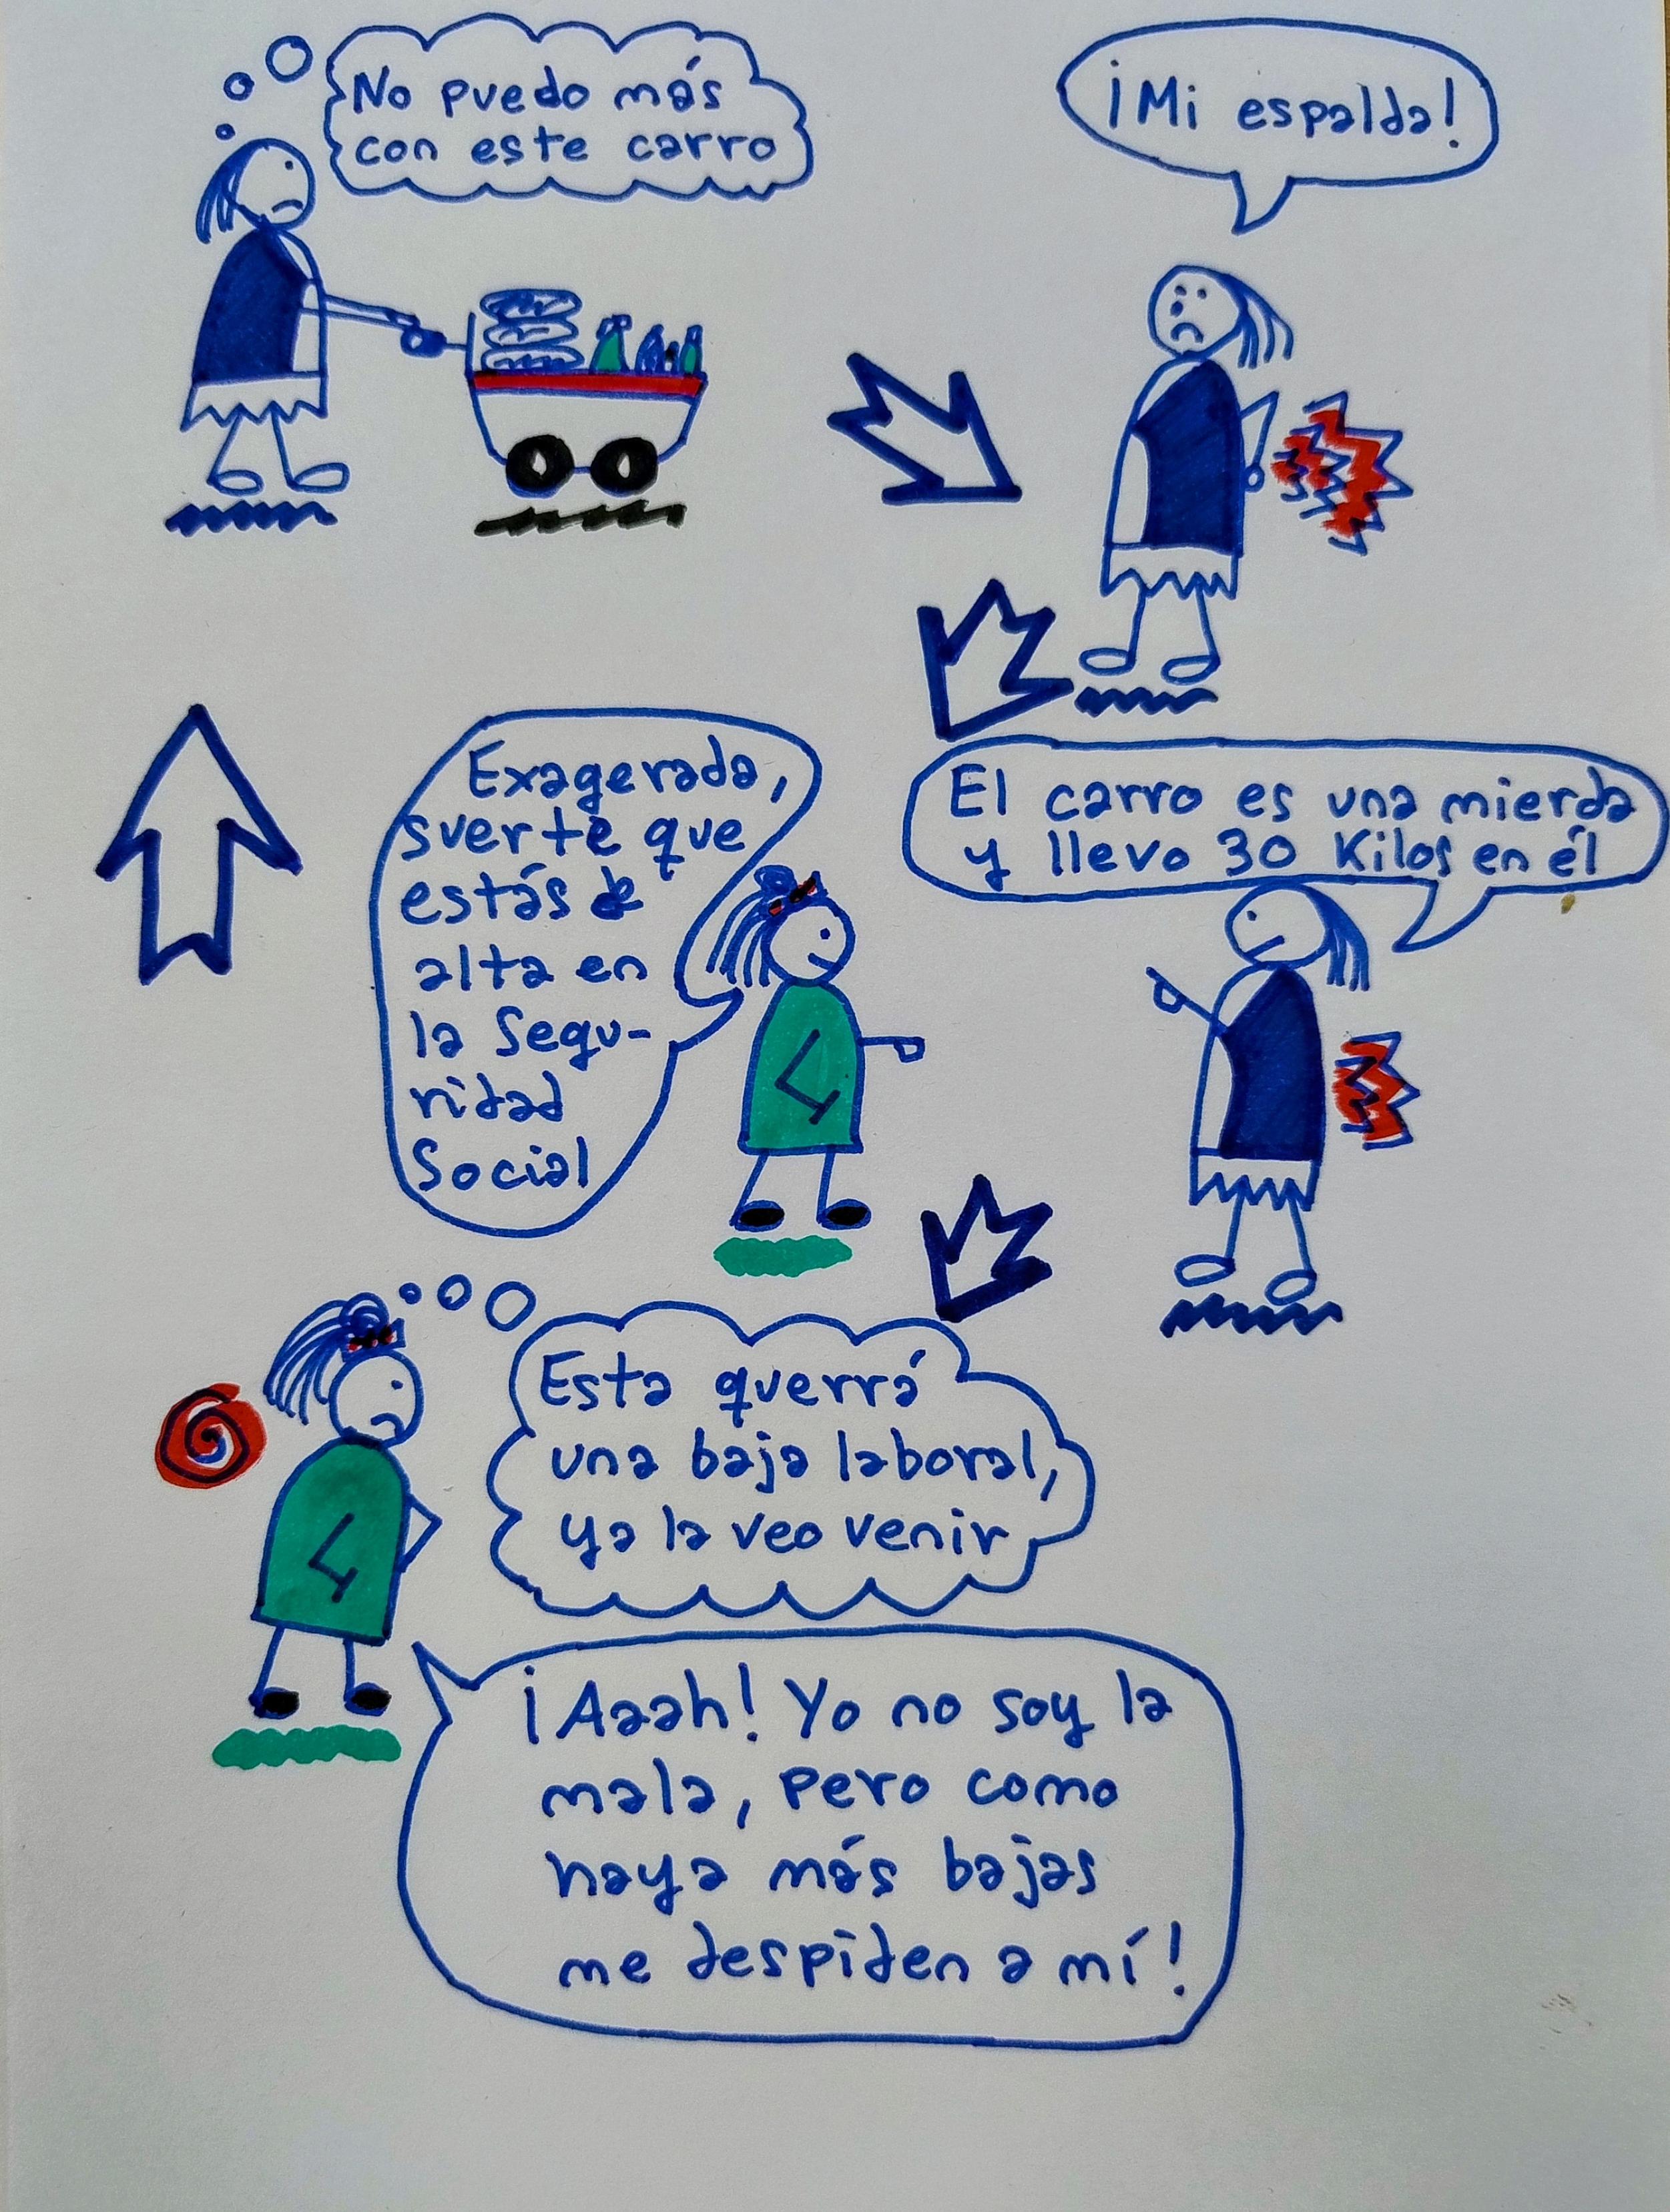 No puedo más
con este carro
¡Mi espalda!
El carro es una mierda
y llevo 30 Kilos en él
Exagerada,
suerte que
estás de
alta en
la Segu-
ridad
Social
Esta querrá
una baja laboral,
ya la veo venir
¡Aaah! Yo no soy la
mala, pero como
haya más bajas
me despiden a mí!